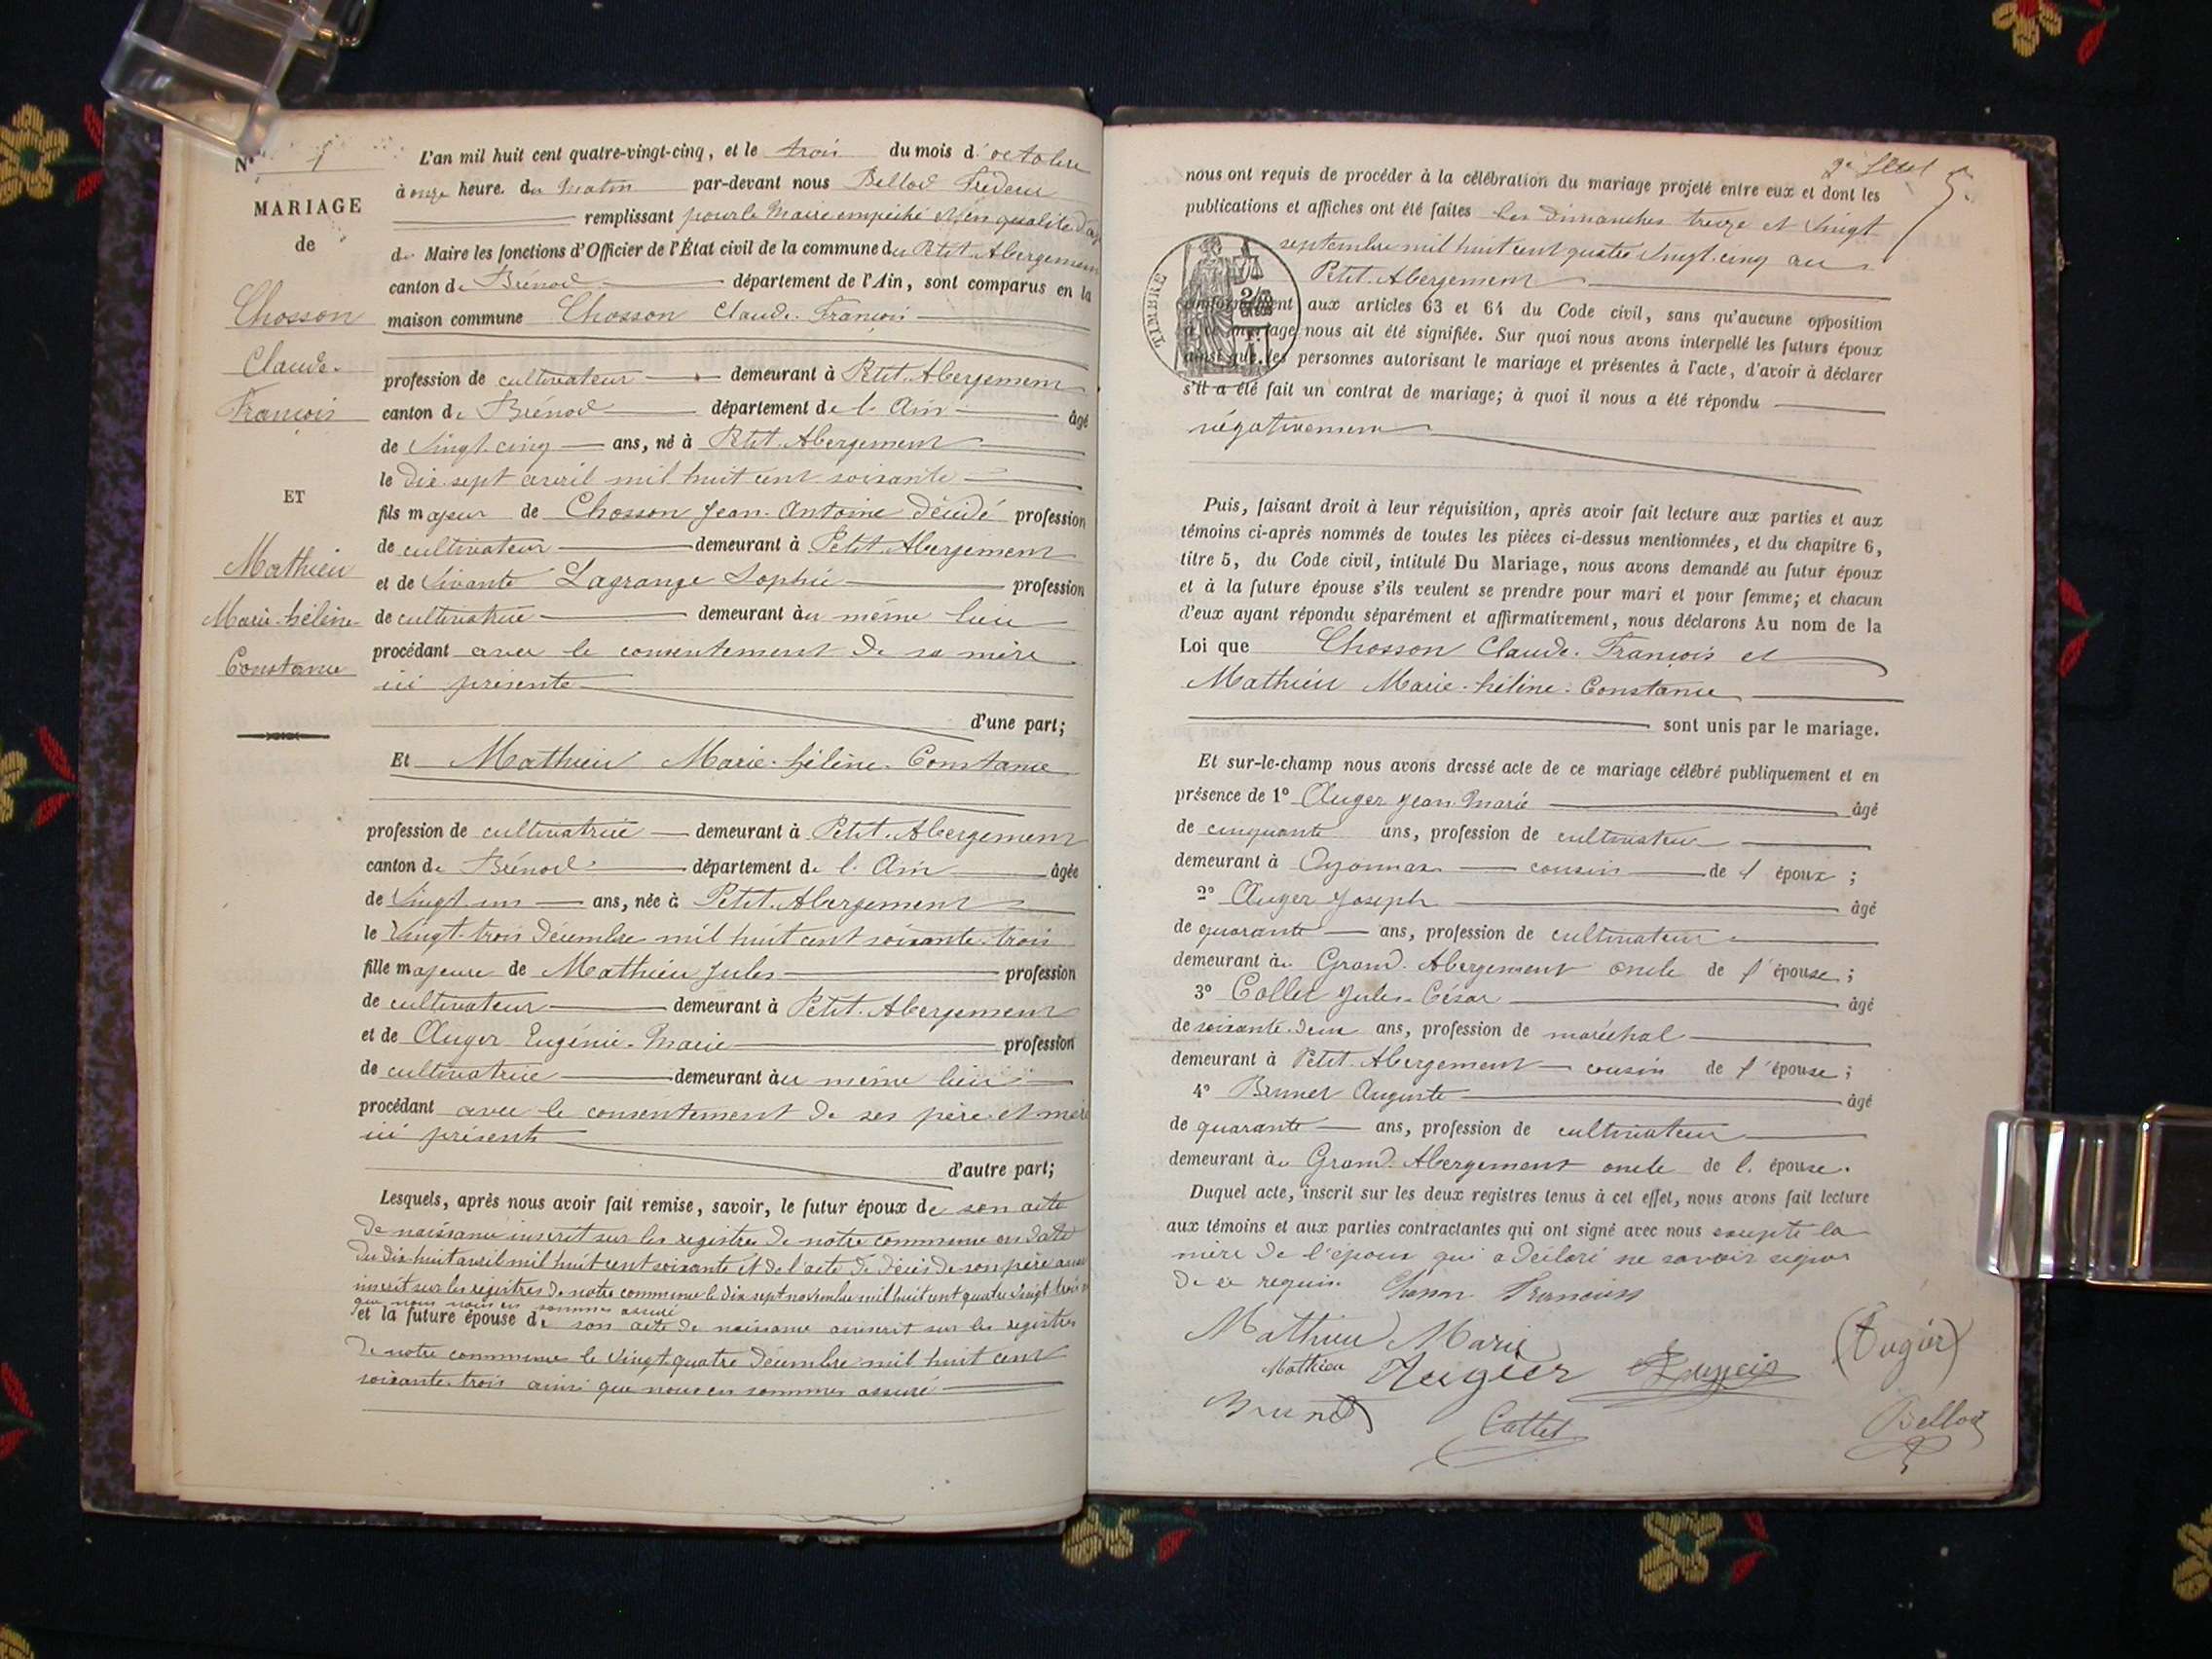 N° 1
MARIAGE
de
Chosson
Claude-
François
ET
Mathieu
Marie-hélène-
Constance
L'an mil huit cent quatre-vingt-cinq, et le trois du mois d'octobre
à onze heure. du matin par-devant nous Bellod
remplissant pour le Maire empêché et en qualité
de Maire les fonctions d'Officier de l'État civil de la commune du Petit-Abergement
canton de Brénod département de l'Ain, sont comparus en la
maison commune Chosson Claude-François
profession de cultivateur demeurant à Petit-Abergement
canton de Brénod département de l'Ain âgé
de vingt-cinq ans, né à Petit-Abergement
le dix-sept avril mil huit cent soixante
fils majeur de Chosson Jean-Antoine décédé profession
de cultivateur demeurant à Petit-Abergement
et de vivante Lagrange Sophie profession
de cultivatrice demeurant au même lieu
procédant avec le consentement de sa mère
ici présente
d'une part;
Et Mathieu Marie-hélène-Constance
profession de cultivatrice demeurant à Petit-Abergement
canton de Brénod département de l'Ain âgée
de vingt-un ans, née à Petit-Abergement
le vingt-trois décembre mil huit cent soixante-trois
fille majeure de Mathieu Jules profession
de cultivateur demeurant à Petit-Abergement
et de Auger Eugénie-Marie profession
de cultivatrice demeurant au même lieu
procédant avec le consentement de ses père et mère
ici présents
d'autre part;
Lesquels, après nous avoir fait remise, savoir, le futur époux de son acte
de naissance inscrit sur les registres de notre commune en date
du dix huit avril mil huit cent soixante et de l'acte de décès de son père
inscrit sur les registres de notre commune le dix sept novembre mil huit cent quatre vingt trois
que nous nous en sommes assuré
et la future épouse de son acte de naissance inscrit sur les registres
de notre commune le vingt-quatre décembre mil huit cent
soixante-trois ainsi que nous en sommes assuré
nous ont requis de procéder à la célébration du mariage projeté entre eux et dont les
publications et affiches ont été faites les dimanches treize et vingt
septembre mil huit cent quatre vingt-cinq au
Petit-Abergement
TIMBRE
conformément aux articles 63 et 64 du Code civil, sans qu'aucune opposition
à ce mariage nous ait été signifiée. Sur quoi nous avons interpellé les futurs époux
ainsi que les personnes autorisant le mariage et présentes à l'acte, d'avoir à déclarer
s'il a été fait un contrat de mariage; à quoi il nous a été répondu
négativement
Puis, faisant droit à leur réquisition, après avoir fait lecture aux parties et aux
témoins ci-après nommés de toutes les pièces ci-dessus mentionnées, et du chapitre 6,
titre 5, du Code civil, intitulé Du Mariage, nous avons demandé au futur époux
et à la future épouse s'ils veulent se prendre pour mari et pour femme; et chacun
d'eux ayant répondu séparément et affirmativement, nous déclarons Au nom de la
Loi que Chosson Claude-François et
Mathieu Marie-hélène-Constance
sont unis par le mariage.
Et sur-le-champ nous avons dressé acte de ce mariage célébré publiquement et en
présence de 1° Auger Jean-Marie âgé
de cinquante ans, profession de cultivateur
demeurant à Oyonnax cousin de l'époux;
2° Auger Joseph âgé
de quarante ans, profession de cultivateur
demeurant au Grand-Abergement oncle de l'épouse;
3° Collet Jules-César âgé
de soixante-deux ans, profession de maréchal
demeurant à Petit-Abergement cousin de l'épouse;
4° Brunet Auguste âgé
de quarante ans, profession de cultivateur
demeurant au Grand-Abergement oncle de l'épouse.
Duquel acte, inscrit sur les deux registres tenus à cet effet, nous avons fait lecture
aux témoins et aux parties contractantes qui ont signé avec nous excepté la
mère de l'époux qui a déclaré ne savoir signer
de ce requise. François
Mathieu Marie
Mathieu Augier (Augier)
Brunet Collet Bellod